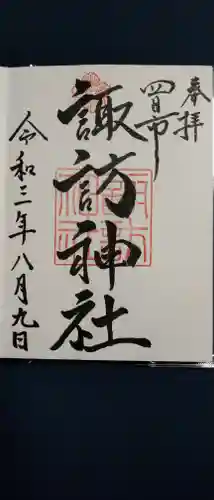 奉拝
四日市
諏訪神社
令和三年八月九日